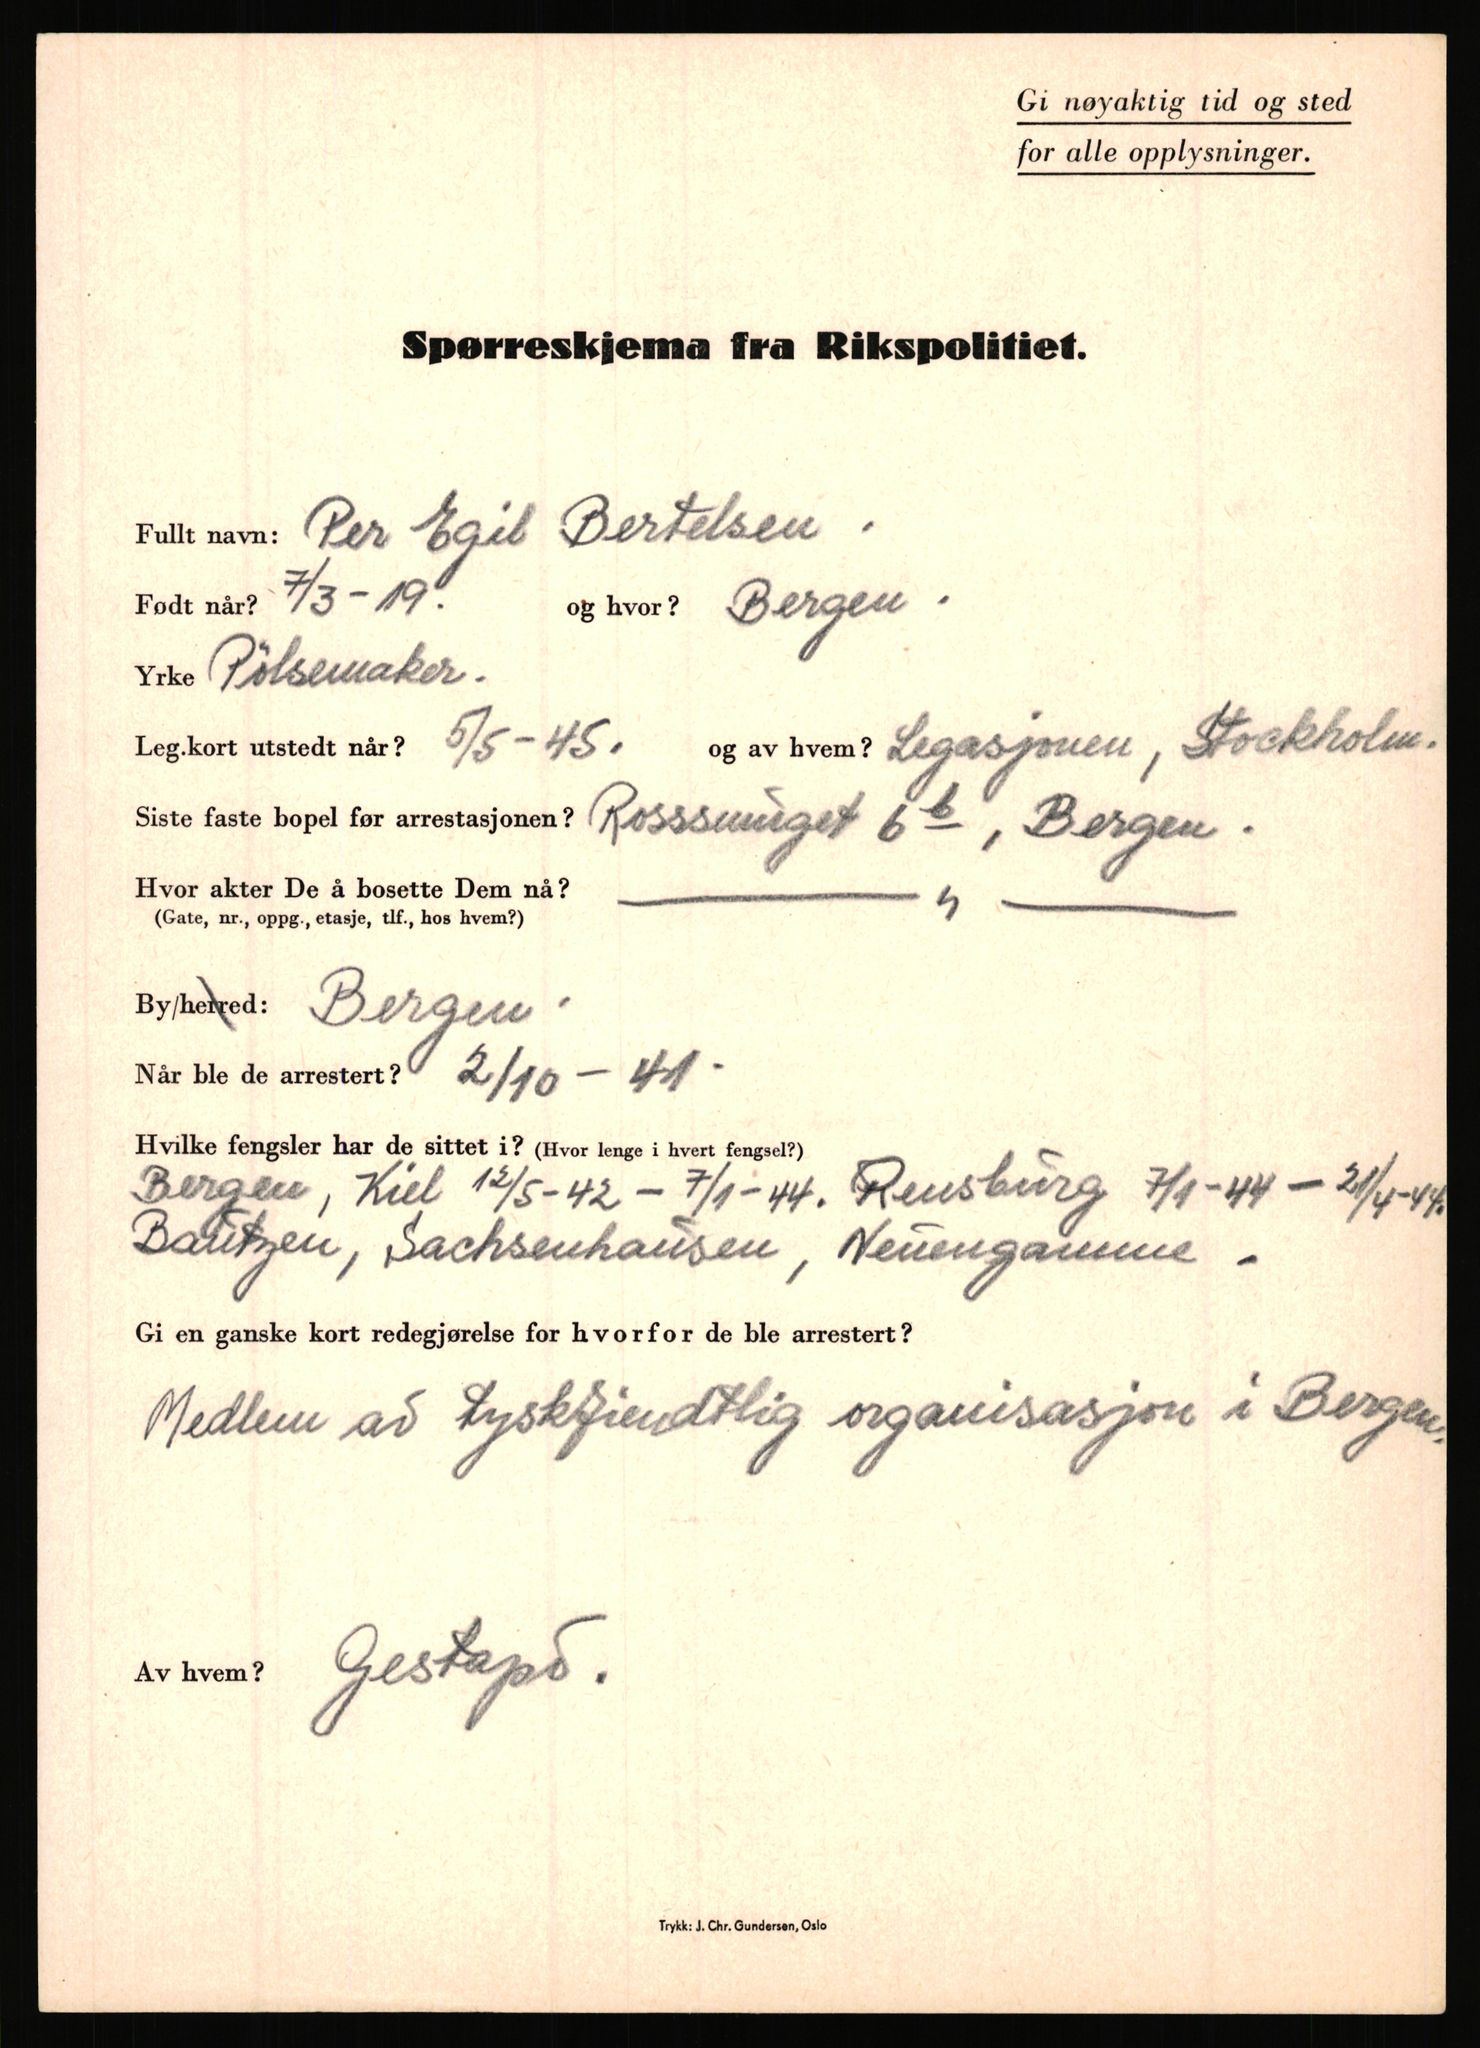 Gi nøyaktig tid og sted
for alle opplysninger.
Spørreskjema fra Rikspolitiet.
Fullt navn: Per Egil Bertelsen.
Født når? 7/3-19. og hvor? Bergen.
Yrke Pölsemaker.
Leg.kort utstedt når? 5/5-45. og av hvem? Legasjonen, Stockholm.
Siste faste bopel før arrestasjonen? Rosssmuget 6 b, Bergen.
Hvor akter De å bosette Dem nå? — „ —
(Gate, nr., oppg., etasje, tlf., hos hvem?)
By/herred: Bergen.
Når ble de arrestert? 2/10-41.
Hvilke fengsler har de sittet i? (Hvor lenge i hvert fengsel?)
Bergen, Kiel 12/5-42 - 7/1-44. Rensburg 7/1-44 - 21/4-44.
Bautzen, Sachsenhausen, Neuengamme.
Gi en ganske kort redegjørelse for hvorfor de ble arrestert?
Medlem av tyskfiendtlig organisasjon i Bergen.
Av hvem? Gestapo.
Trykk: J. Chr. Gundersen, Oslo